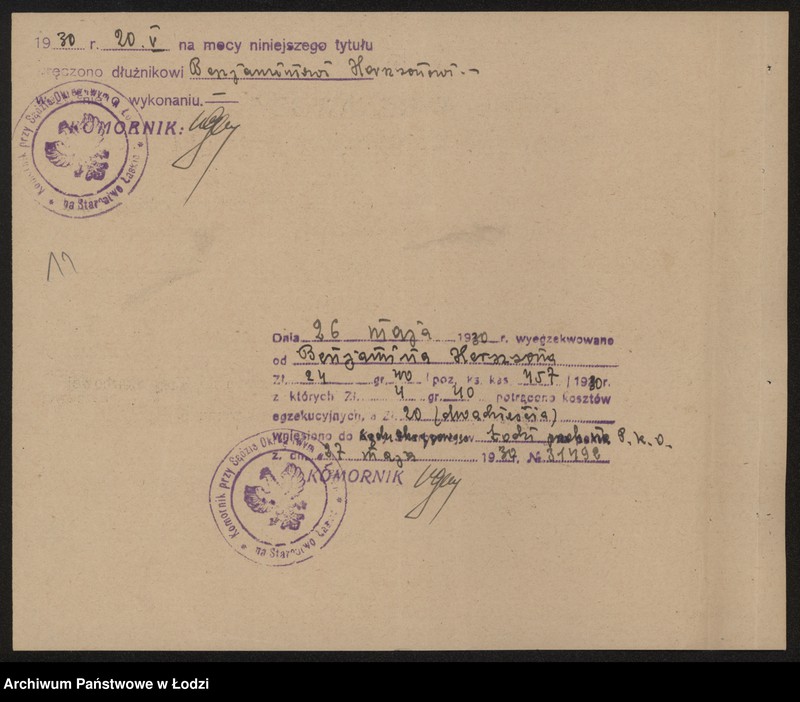 1930 r. 20.V na mocy niniejszego tytułu
ręczono dłużnikowi Benjaminowi Herszonowi.-
wykonaniu.
KOMORNIK:
Komornik przy Sądzie Okręgowym w Ł
na Starostwo Łaskie
11
Dnia 26 maja 1930 r. wyegzekwowano
od Benjamina Herszona
Zł. 24 gr. 40 / poz. ks. kas. 457 / 1930r.
z których Zł. 4 gr. 40 potrącono kosztów
egzekucyjnych, a Zł. 20 (dwadzieścia)
Wpłacono do Sądu Okręgowego Łodzi P.K.O.
z dn. 27 maja 1930 № 31798
KOMORNIK
Komornik przy Sądzie Okręgowym
na Starostwo Łaskie
Archiwum Państwowe w Łodzi